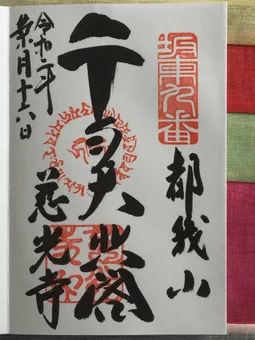 坂東九番
都幾山
千手大悲閣
慈光寺
令和二年
葉月十六日